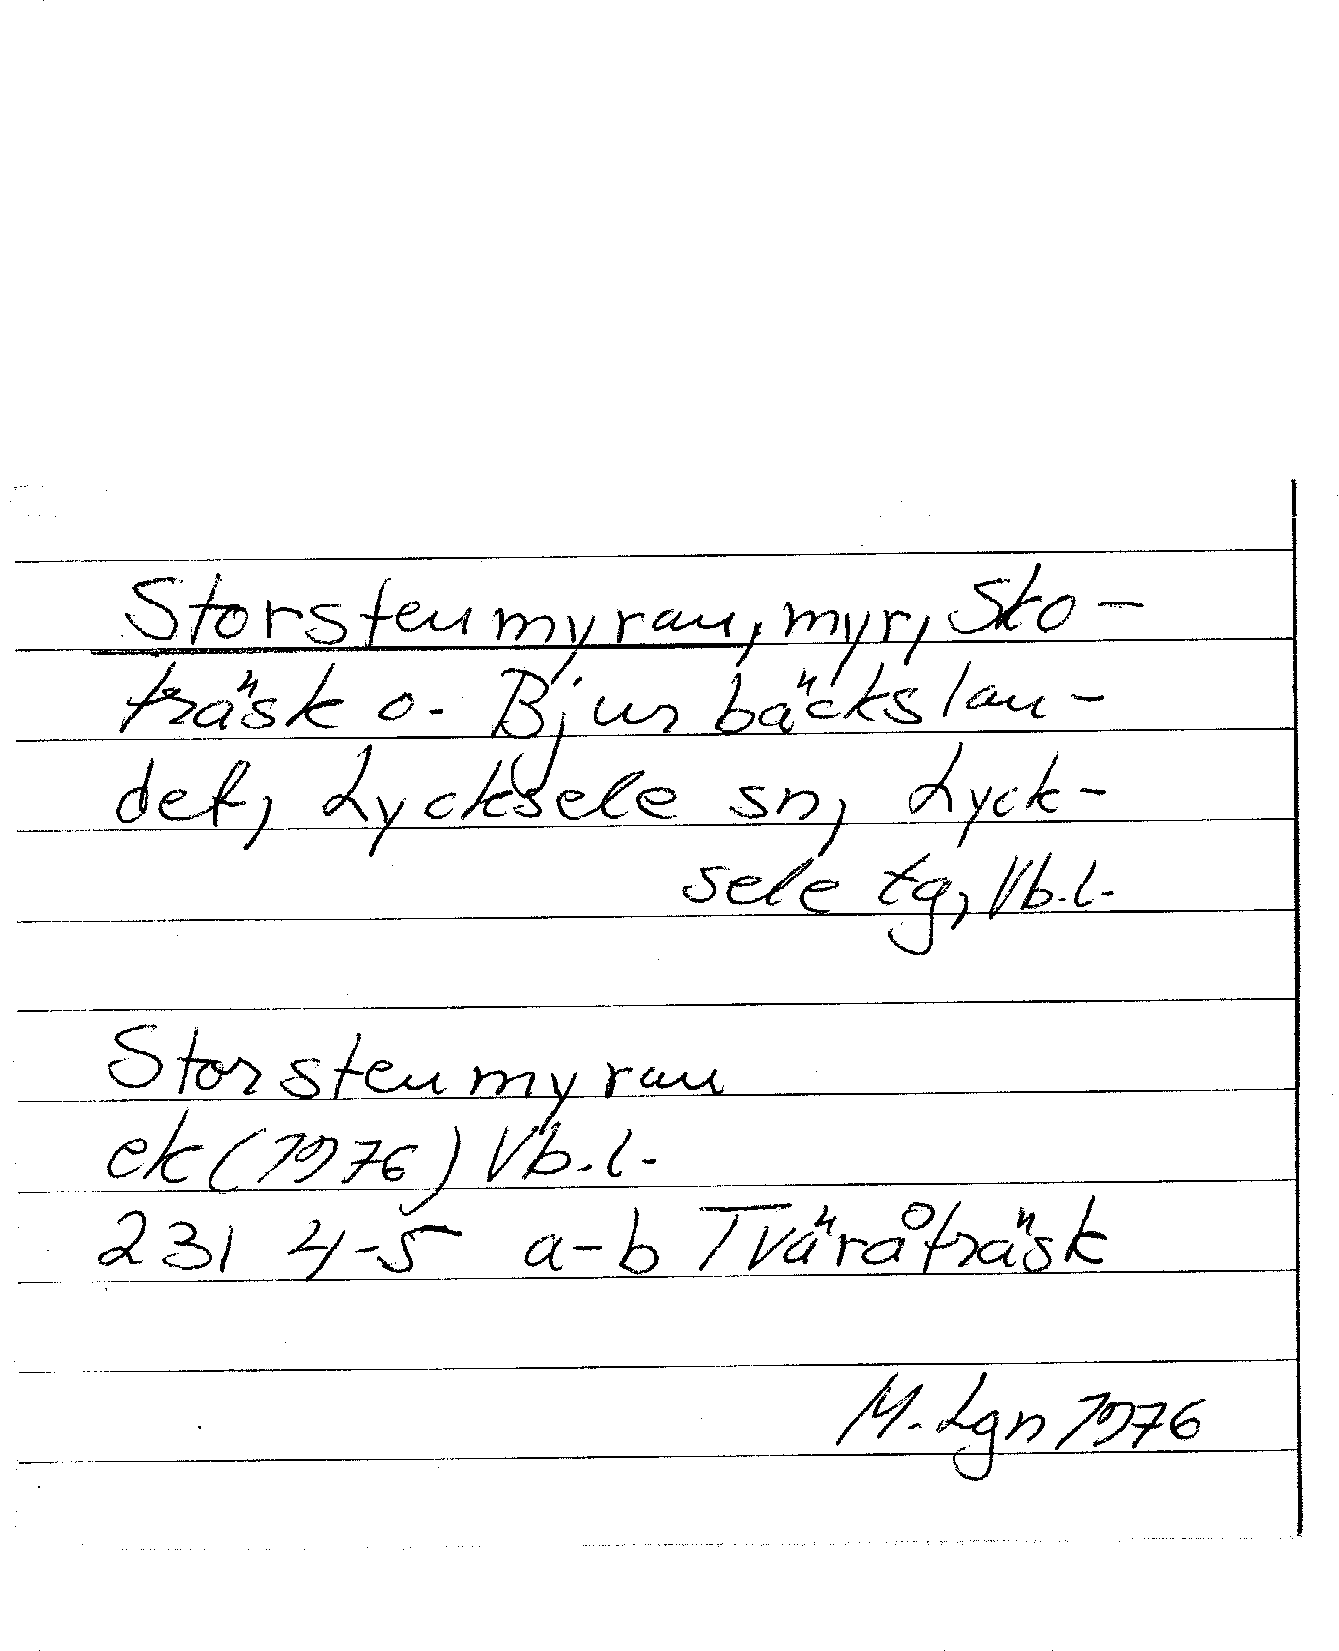 Storstenmyran, myr, Sko-
träsk o. Bjurbäckslan-
det, Lycksele sn, Lyck-
sele tg, Vb.l.
Storstenmyran
ek (1976) Vb.l.
231 4-5 a-b Tväråträsk
M. Lgn 1976